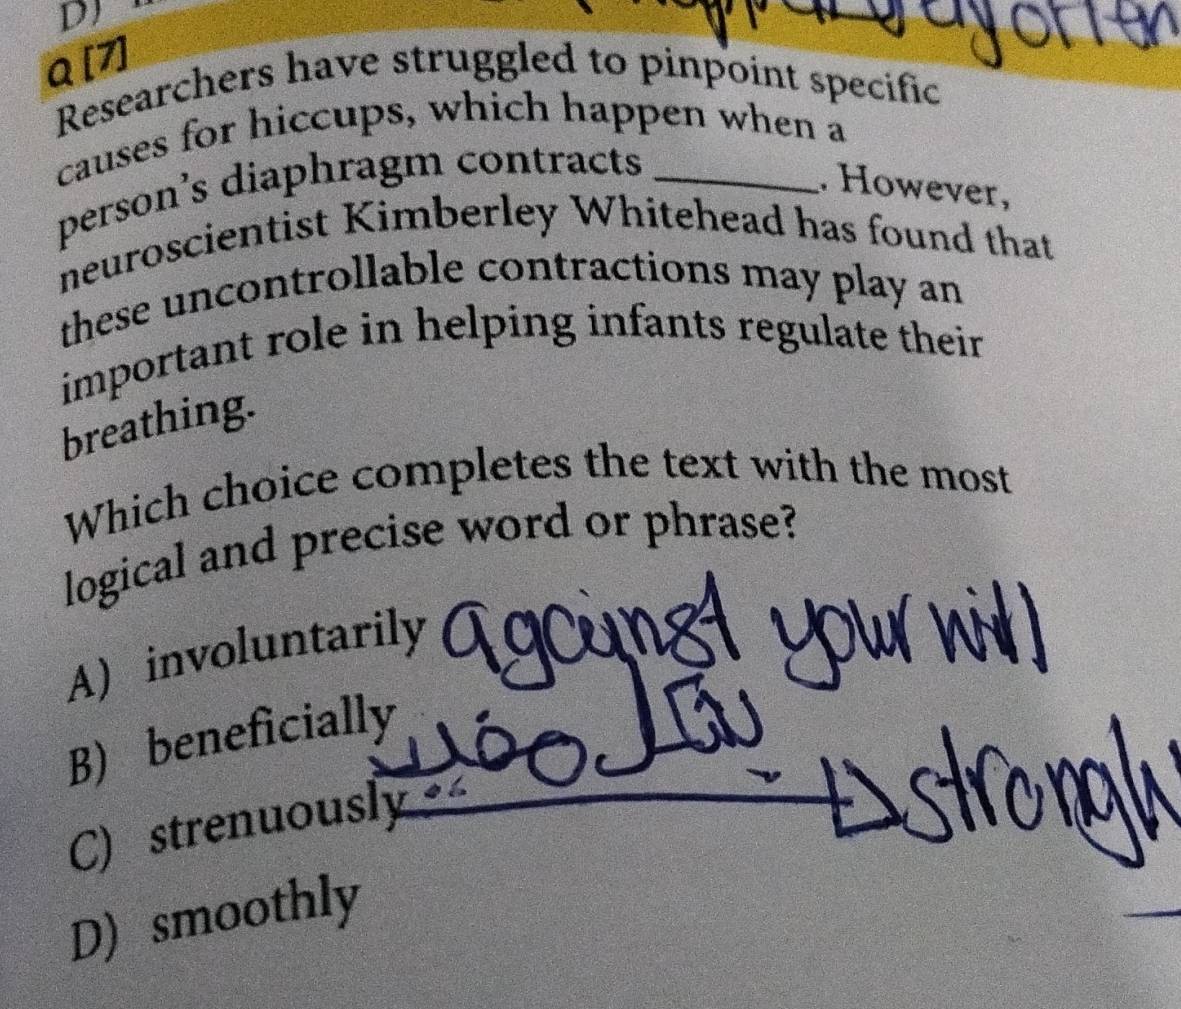 D)
Q [7]
Researchers have struggled to pinpoint specific
causes for hiccups, which happen when a
person's diaphragm contracts ________. However,
neuroscientist Kimberley Whitehead has found that
these uncontrollable contractions may play an
important role in helping infants regulate their
breathing.
Which choice completes the text with the most
logical and precise word or phrase?
A) involuntarily against your will
B) beneficially
C) strenuously strongly
D) smoothly